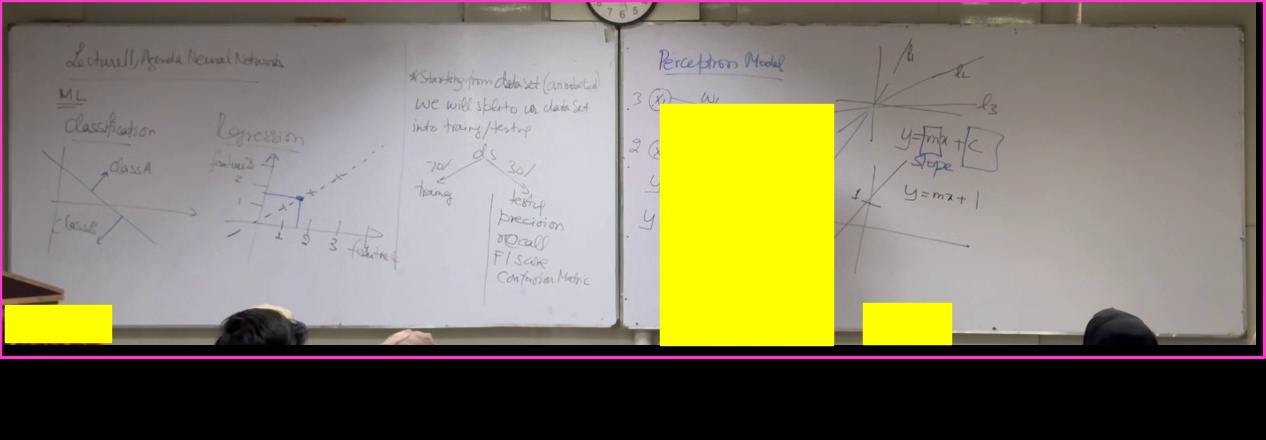 Lecture11, Agenda Neural Networks
ML
Classification
Class A
Class B
Regression
2
1
1 2 3
*Starting from dataset (annotated)
we will split to us dataset
into traing/testing
ds
70% 30%
traing
testing
precision
recall
F1 score
Confusion Matric
Perceptron Model
3 x1 w1
2 x
y
y
l1
l2
l3
y=mx+c
slope
1
y=mx+1
7 6 5